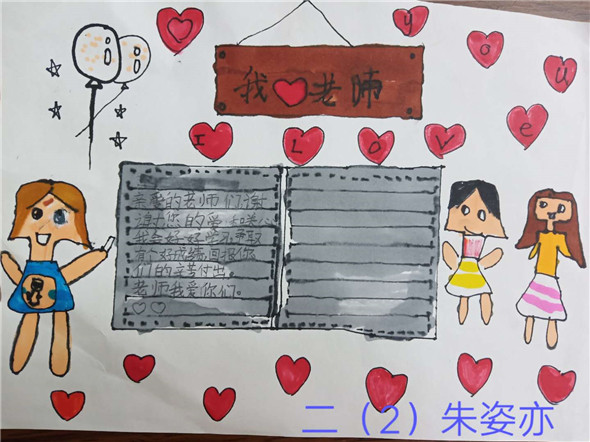 我老师
I L O V e
y o u
亲爱的老师们谢
谢您的爱和关心
我会好好学习争取
有好成绩回报你
们的辛苦付出。
老师我爱你们。
二（2）朱姿亦